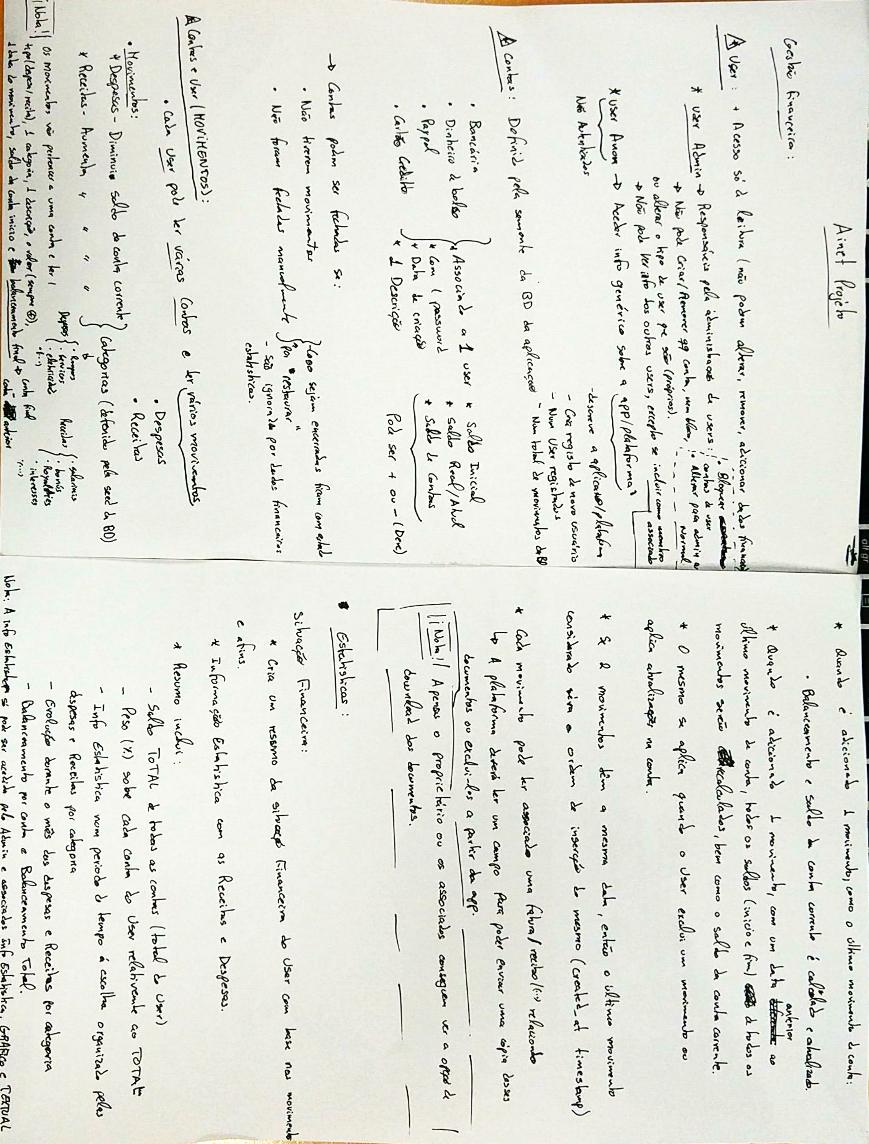 Ainet Projeto
Gestão Financeira:
User: + Acesso só de leitura (não podem alterar, remover, adicionar dados financ
* User Admin → Responsáveis pela administração de users: • Bloquear
contas de user
→ Não pode Criar/Remover conta, nem bloq. • Alterar para admin ou
ou alterar o tipo de user que são (próprios). Normal
→ Não pode ver info dos outros users, excepto se incluir como membro
associado
* User Anon → Aceder info genérico sobre a app/plataforma
Não Autenticados
- descreve a aplicação/plataforma
- Cria registo de novo usuário
- Num User registados
- Num total de movimentos da BD
Contas: Definida pela semente da BD da aplicação
• Bancária
• Dinheiro de bolso
• Paypal
• Cartão Crédito
* Associado a 1 user
* Com 1 password
* Data de criação
* 1 Descrição
* Saldo Inicial
* Saldo Real/Atual
* Saldo de Contas
Pode ser + ou - (Deve)
→ Contas podem ser fechadas se:
• Não tiverem movimentos
• Não foram fechadas manualmente
Caso sejam encerradas ficam com estado
por "restaurar"
- São ignorado por dados financeiros
estatísticos.
Contas e User (MOVIMENTOS):
• Cada User pode ter várias Contas e ter vários movimentos
• Despesas
• Receitas
• Movimentos:
* Despesas - Diminui saldo da conta corrente
* Receitas - Aumenta " " " "
Categorias (definido pela seed da BD)
Despesas
• Roupas
• Serviços
• eletricidade
• (...)
Receitas
• salarios
• bonús
• Royalties
• interesses
(...)
¡Nota!
Os movimentos vão pertencer a uma conta e ter 1
tipo (despesa/receita), 1 categoria, 1 descrição, o valor (sempre +),
1 data do movimento, saldo da conta inicio e balanceamento final → conta final
conta anterior
* Quando é adicionado 1 movimento, como o último movimento da conta:
• Balanceamento e saldo da conta corrente é calculado e atualizado.
* Quando é adicionado 1 movimento, com um data anterior ao
último movimento da conta, todos os saldos (inicio e fim) de todos os
movimentos serão recalculados, bem como o saldo da conta corrente.
* O mesmo se aplica quando o user exclui um movimento ou
aplica atualizações na conta.
* Se 2 movimentos têm a mesma data, então o último movimento
considerado será a ordem de inserção do mesmo (created_at timestamp)
* Cada movimento pode ter associado uma fatura/recibo/(...) relacionado
↳ A plataforma deverá ter um campo para poder enviar uma cópia desses
documentos ou exclui-los a partir da app.
¡¡Nota!! Apenas o proprietário ou os associados conseguem ver a opção de
download dos documentos.
• Estatísticas:
Situação Financeira:
* Cria um resumo da situação financeira do user com base nos movimento
e afins.
* Informação Estatística com as Receitas e Despesas.
* Resumo inclui:
- Saldo TOTAL de todas as contas (total do User)
- Peso (%) sobre cada conta do User relativamente ao TOTAL
- Info Estatística num periodo de tempo à escolha organizado pelas
despesas e Receitas por categoria
- Evolução durante o mês das despesas e Receitas por categoria
- Balanceamento por conta e Balanceamento Total.
Nota: A Info Estatística só pode ser acedida pelo Admin e associados Info Estatística, GRÁFICO e TEXTUAL